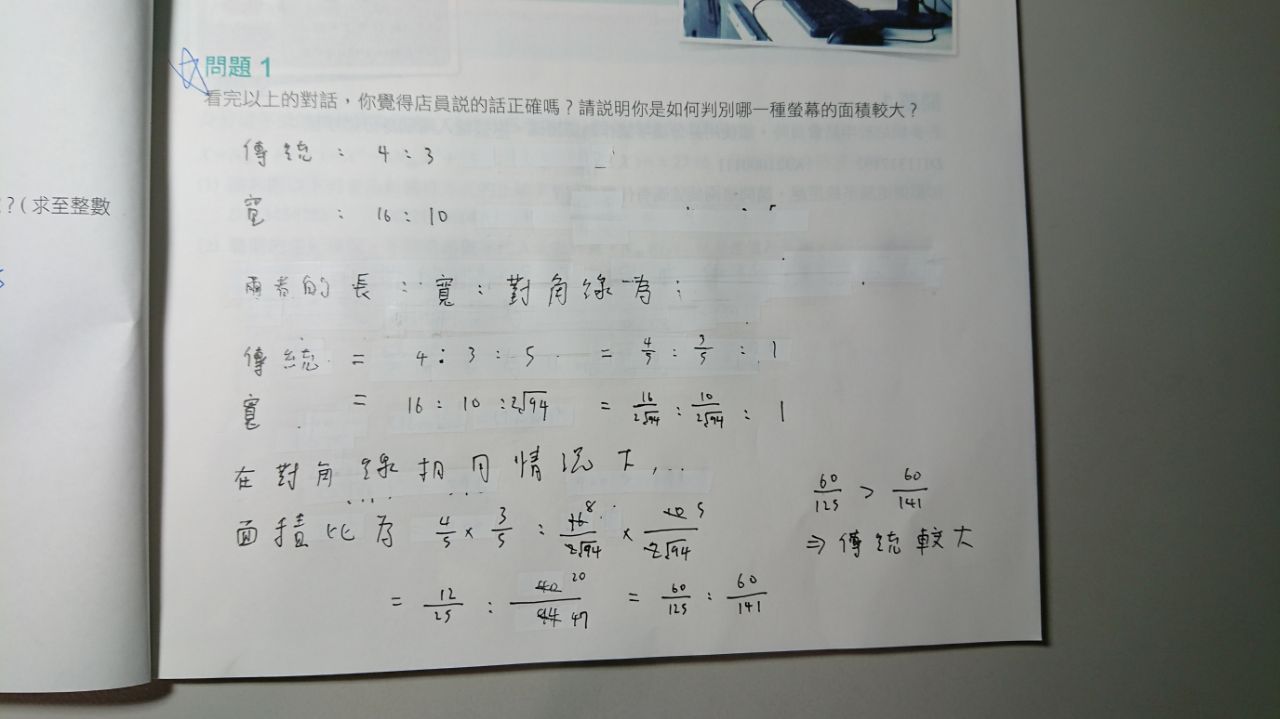 問題 1
看完以上的對話，你覺得店員說的話正確嗎？請說明你是如何判別哪一種螢幕的面積較大？
？( 求至整數
傳統 : 4 : 3
寬 : 16 : 10
兩者的長 : 寬 : 對角線為 :
傳統 = 4 : 3 : 5 = 4/5 : 3/5 : 1
寬 = 16 : 10 : 2√94 = 16/2√94 : 10/2√94 : 1
在對角線相同情況下,...
面積比為 4/5 × 3/5 : 16 8/2√94 × 10 5/2√94
= 12/25 : 40 20/94 47 = 60/125 : 60/141
60/125 > 60/141
⇒ 傳統較大